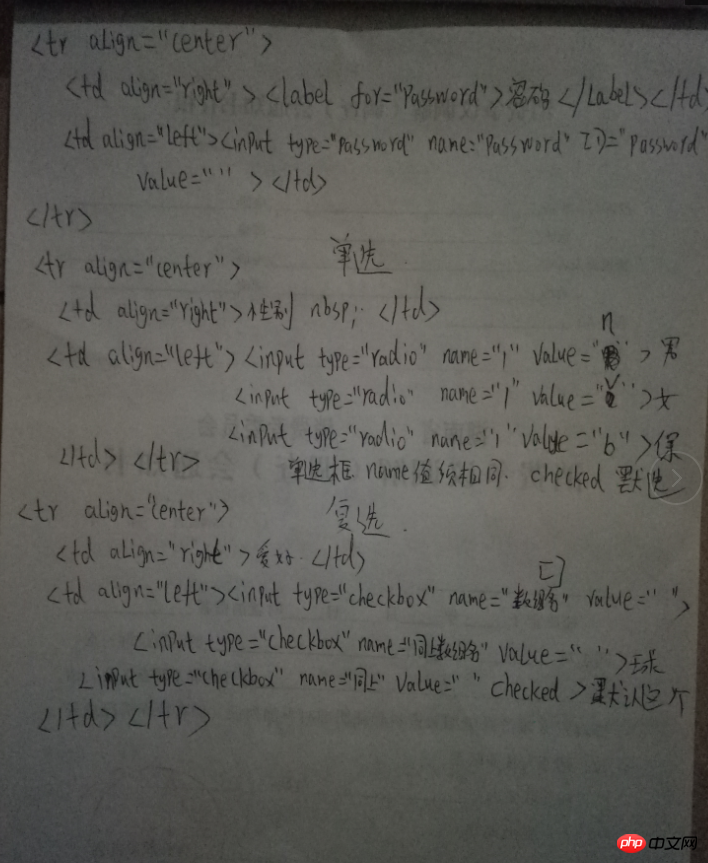 <tr align="center">
<td align="right"><label for="Password">密码</Label></td>
<td align="left"><input type="password" name="Password" ID="password"
value=""></td>
</tr>
<tr align="center"> 单选
<td align="right">性别 nbsp; </td>
n
<td align="left"><input type="radio" name="1" value=" ">男
<input type="radio" name="1" value="v">女
<input type="radio" name="1" value="b">保
</td></tr> 单选框 name值须相同. checked 默选
<tr align="center"> 复选.
<td align="right">爱好.</td>
[]
<td align="left"><input type="checkbox" name="数组名" value=" ">
<input type="checkbox" name="同上数组名" value=" ">球
<input type="checkbox" name="同上" value=" " checked>默认这个
</td></tr>
php 中文网